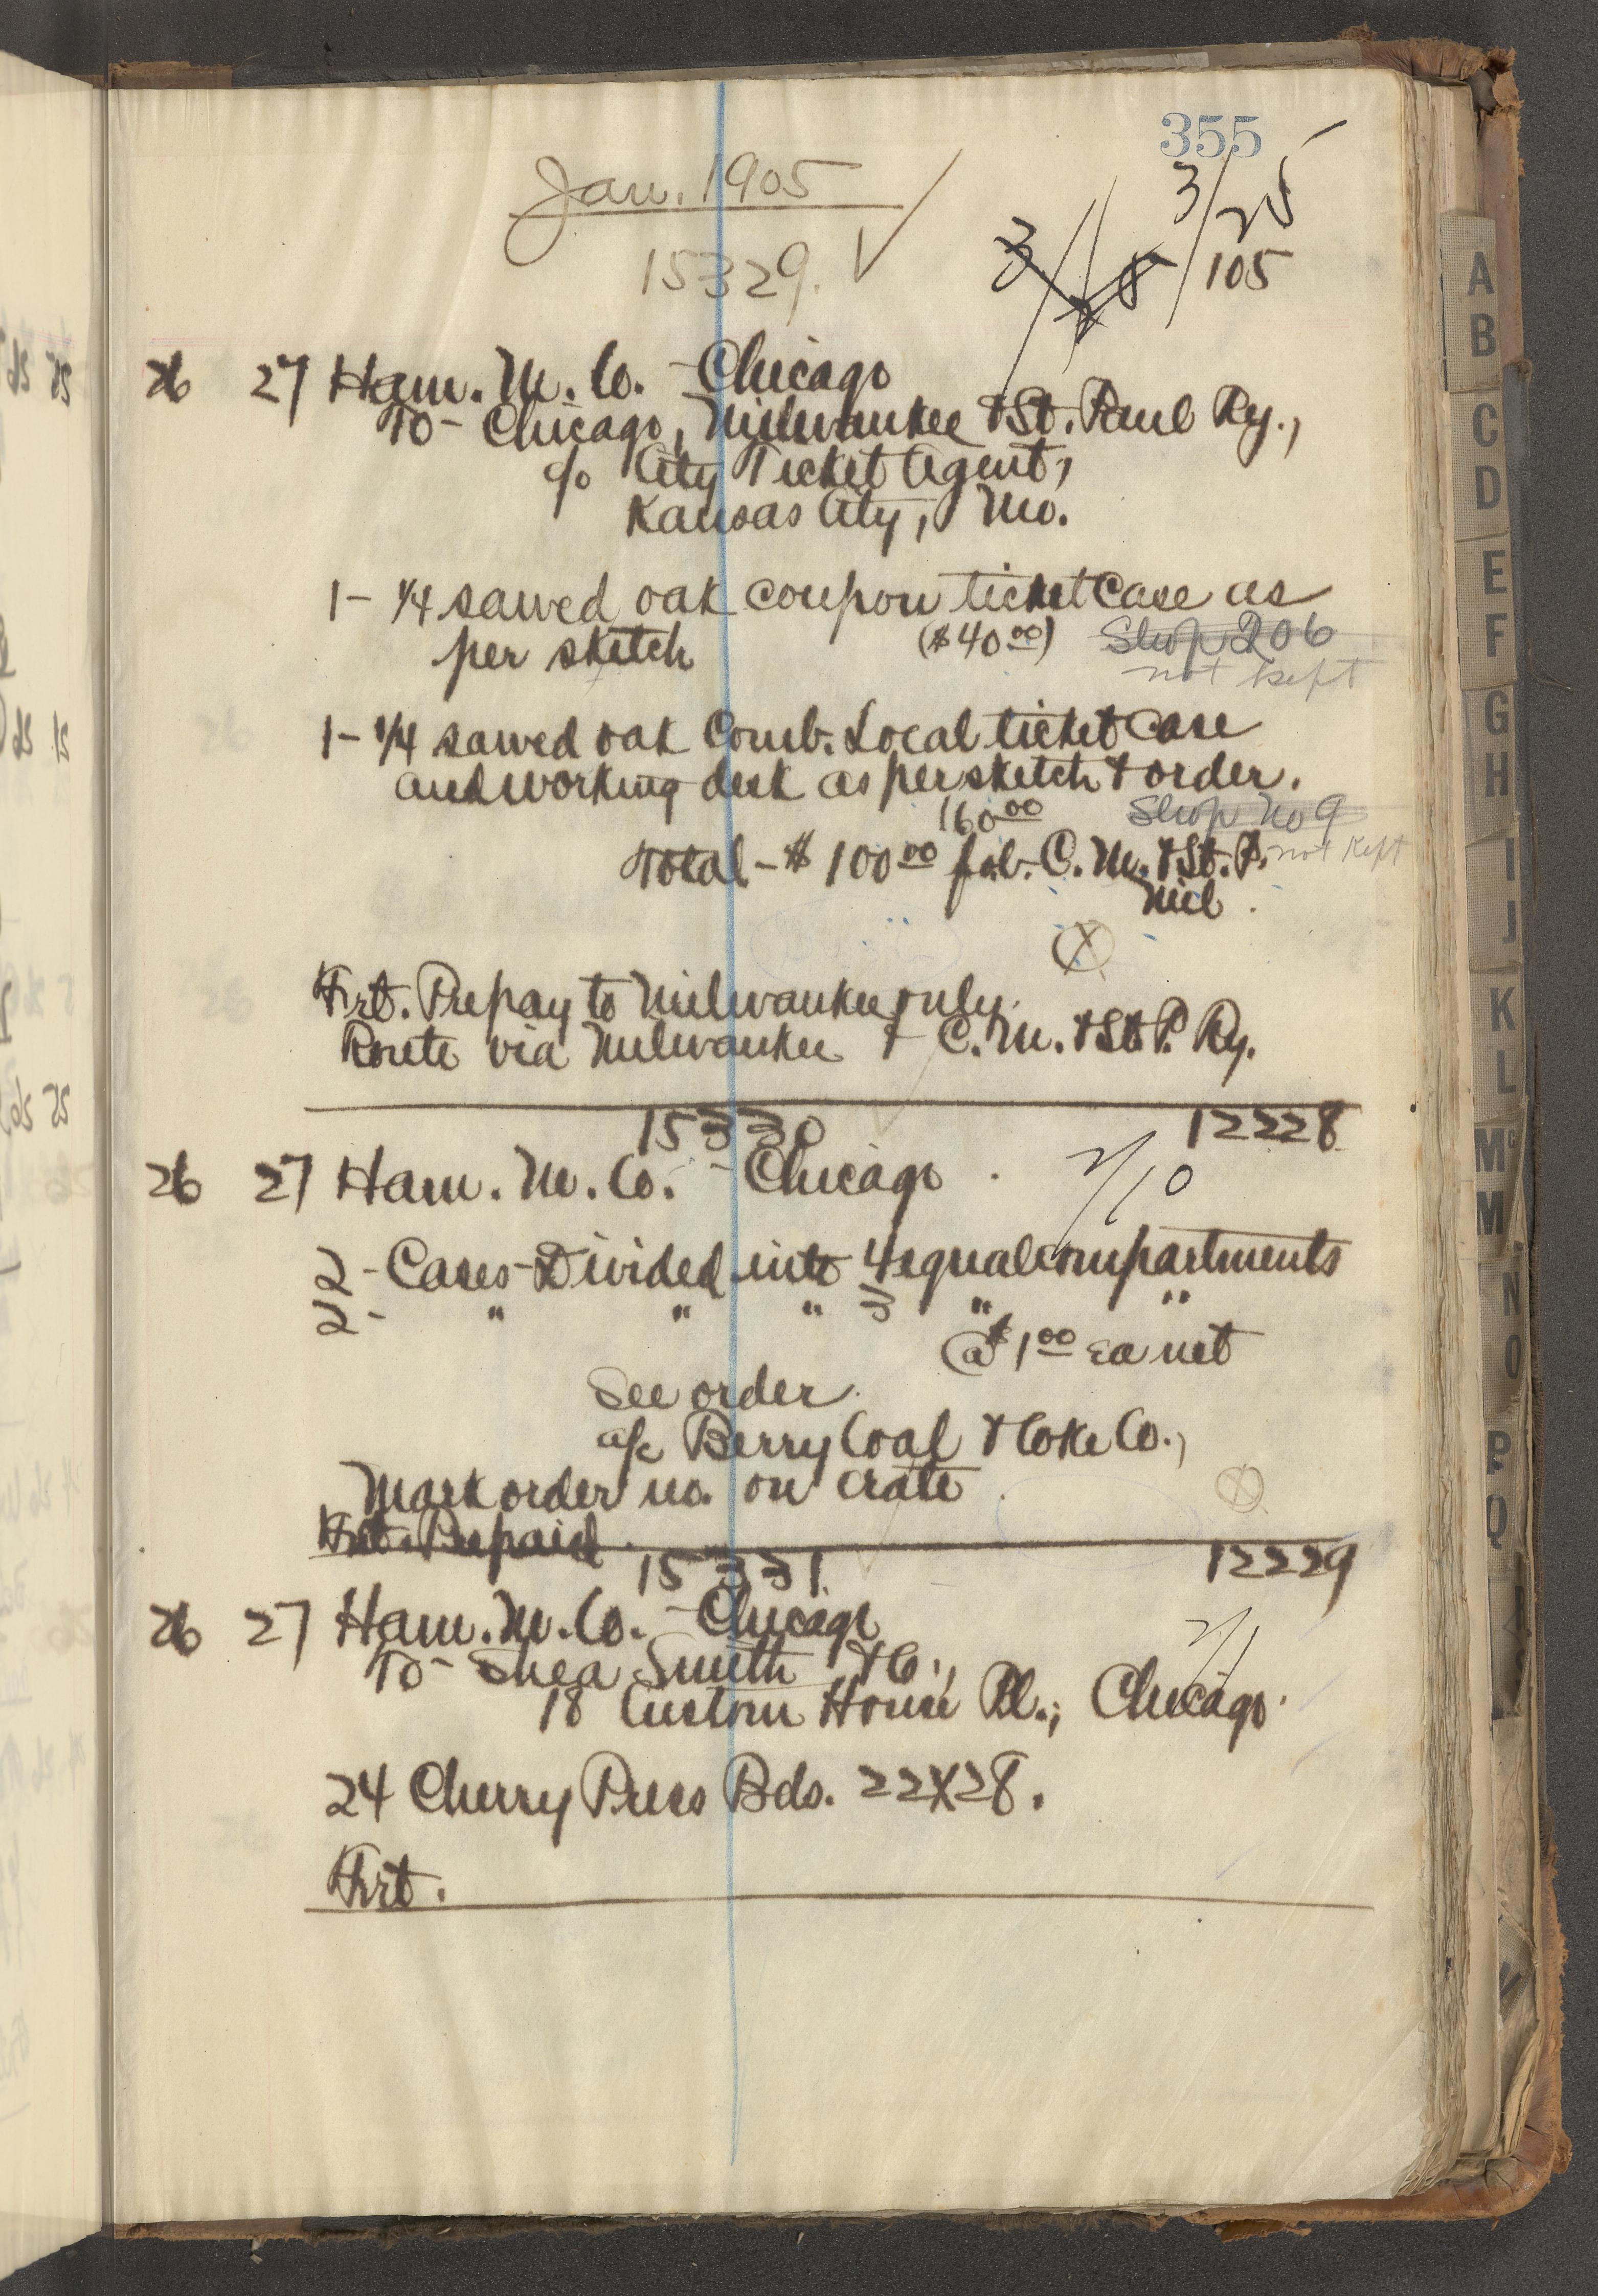 355
Jan. 1905
15329.
3/25
105
26 27 Ham. M. Co. - Chicago
To - Chicago, Milwaukee & St. Paul Ry.,
c/o City Ticket Agent,
Kansas City, Mo.
1 - 1/4 sawed oak coupon ticket case as
per sketch ($40 00) Shop 206
not kept
1 - 1/4 sawed oak Comb. Local ticket case
and working desk as per sketch & order.
160 00 Shop No 9
Total - $100 00 fob. C. M. & St. P. not kept
Mil.
X
Frt. Prepay to Milwaukee only.
Route via Milwaukee & C. M. & St. P. Ry.
15330 12228
26 27 Ham. M. Co. - Chicago. 2/10
2 - Cases Divided into 4 equal compartments
2 - " " " 3 " "
@ $1 00 ea net
See order.
a/c Berry Coal & Coke Co.,
Mark order no. on crate.
X
Frt. Prepaid.
15331 12229
26 27 Ham. M. Co. - Chicago 2/1
To - Shea Smith & Co.,
18 Custom House Pl., Chicago.
24 Cherry Press Bds. 22X28.
Frt.
A
B
C
D
E
F
G
H
I
J
K
L
Mc
M
N
O
P
Q